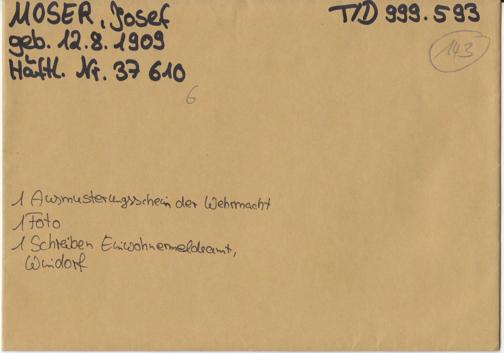 MOSER, Josef
geb. 12.8.1909
Häftl. Nr. 37 610
T/D 999.593
143
6
1 Ausmusterungsschein der Wehrmacht
1 Foto
1 Schreiben Einwohnermeldeamt,
Windorf